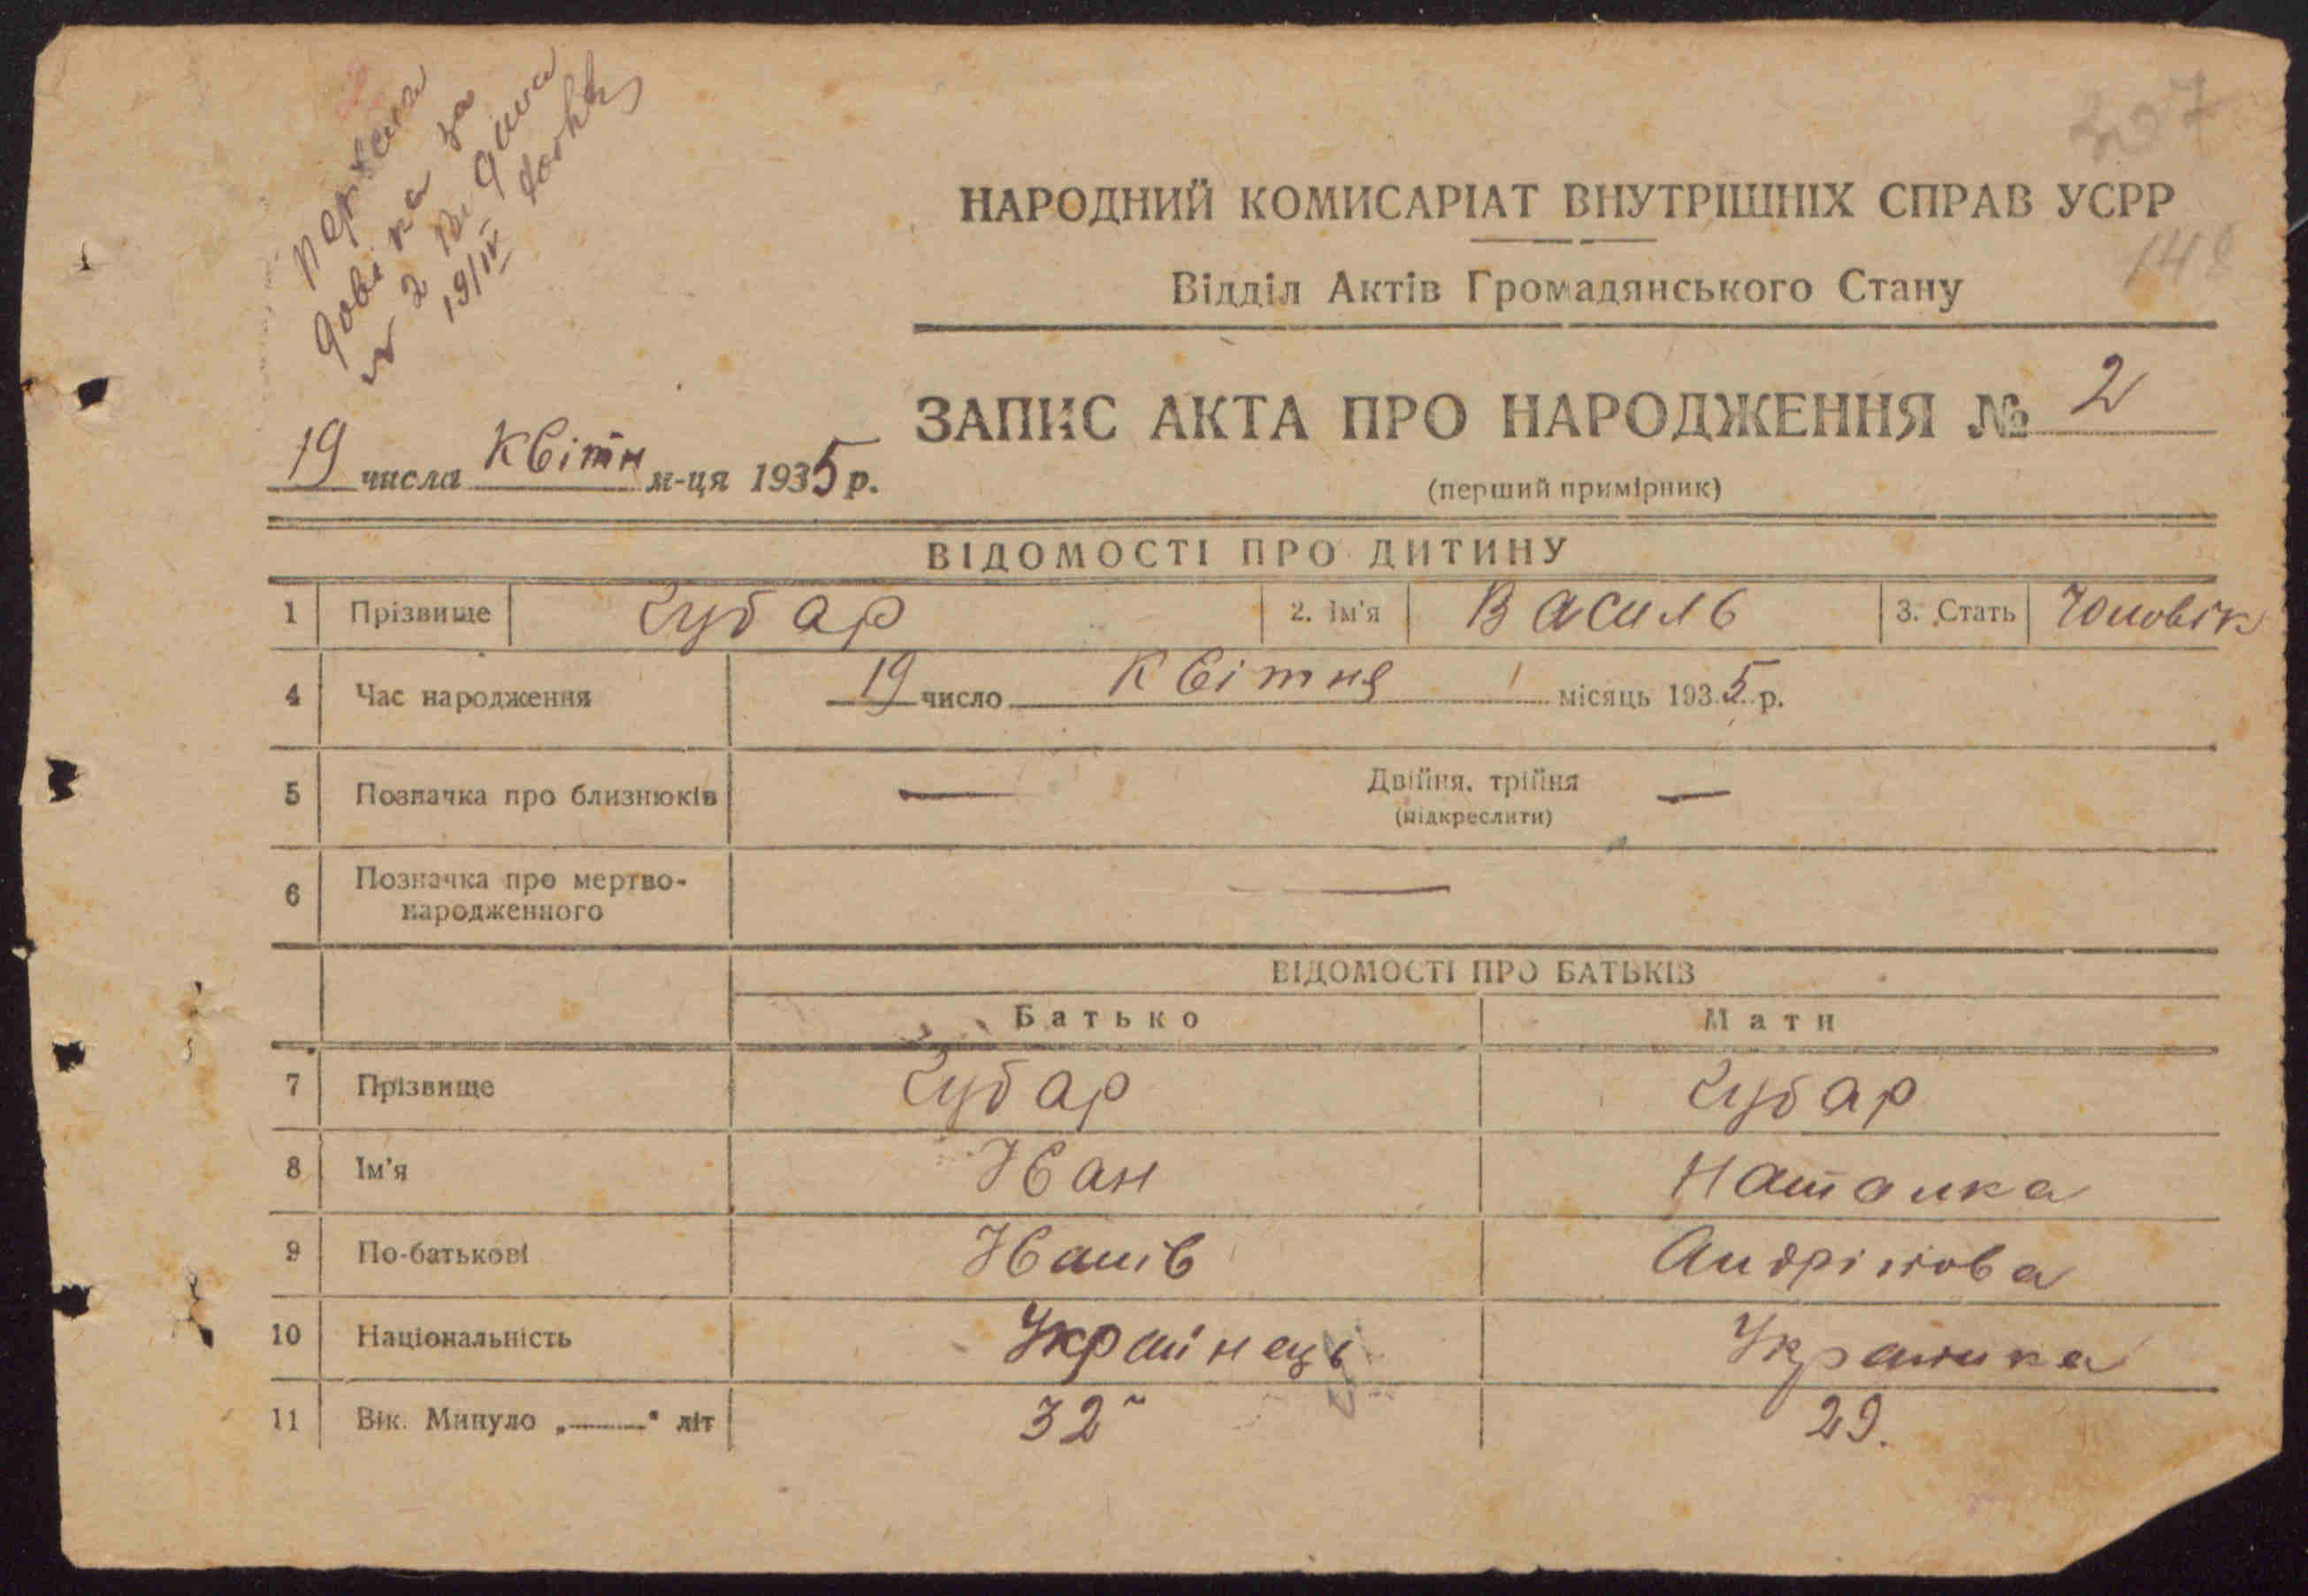 307
НАРОДНИЙ КОМИСАРІАТ ВНУТРІШНІХ СПРАВ УСРР
Відділ Актів Громадянського Стану
довідка за
№ 2
19/IV
ЗАПИС АКТА ПРО НАРОДЖЕННЯ № 2
19 числа Квітн м-ця 1935 р.
(перший примірник)
ВІДОМОСТІ ПРО ДИТИНУ
1 Прізвище Чубар 2. Ім'я Василь 3. Стать Чоловік
4 Час народження 19 число Квітня місяць 1935 р.
5 Позначка про близнюків — Двійня, трійня —
(підкреслити)
6 Позначка про мертво-
народженного —
ВІДОМОСТІ ПРО БАТЬКІВ
Батько Мати
7 Прізвище Чубар Чубар
8 Ім'я Іван Наталка
9 По-батькові Іванів Андріїова
10 Національність Українець Українка
11 Вік. Минуло „ “ літ 32 29.